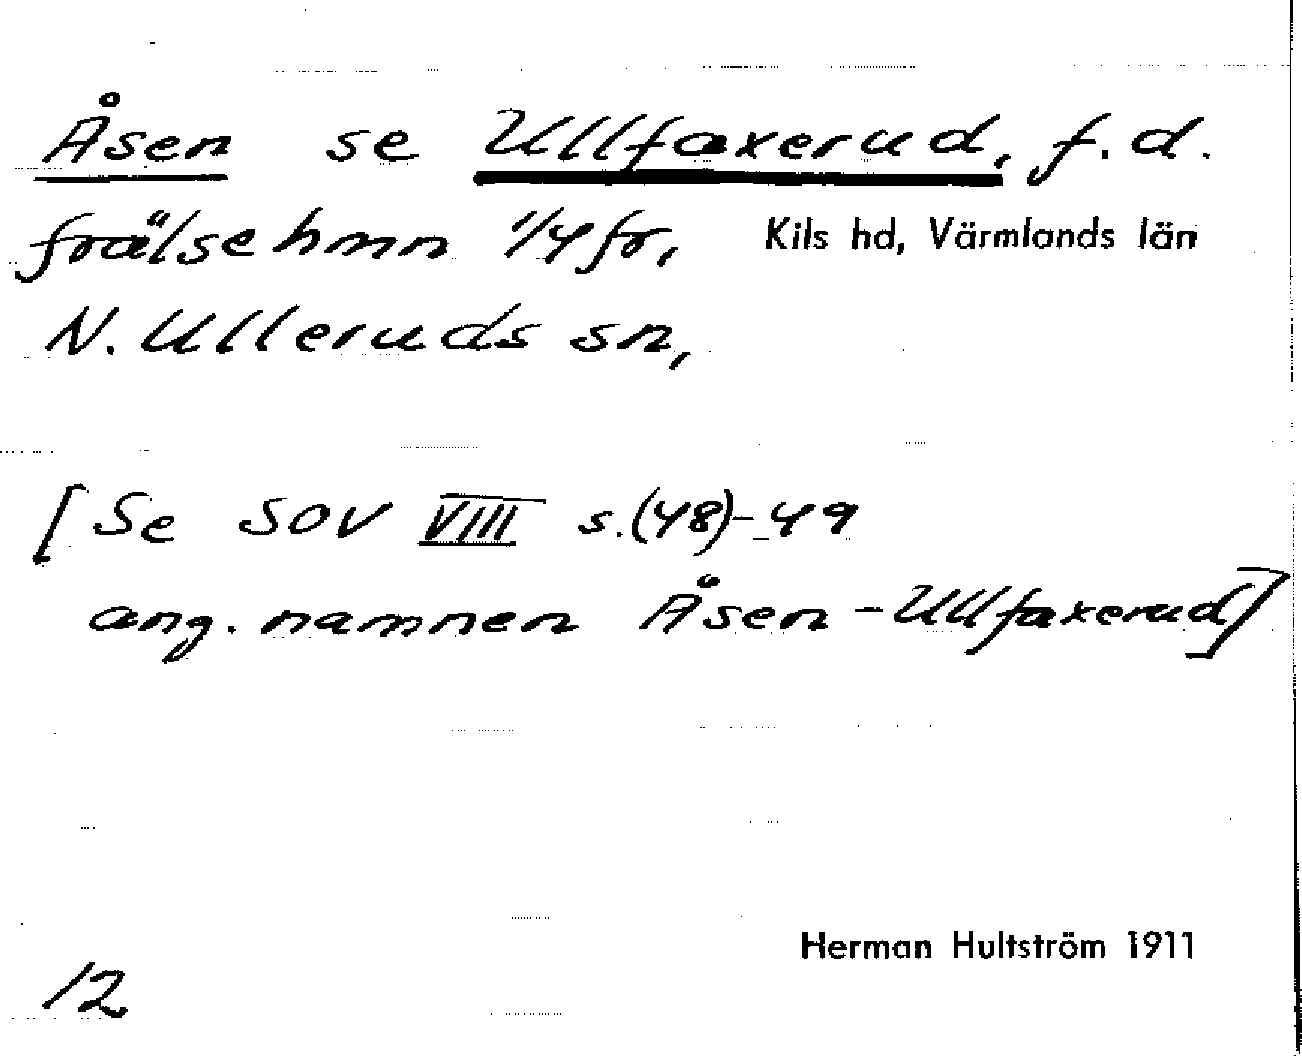 Åsen se Ullfaxerud, f.d.
frälsehmn 1/4 fr, Kils hd, Värmlands län
N. Ulleruds sn,
[Se SOV VIII s.(48)-49
ang. namnen Åsen - Ullfaxerud]
Herman Hultström 1911
12